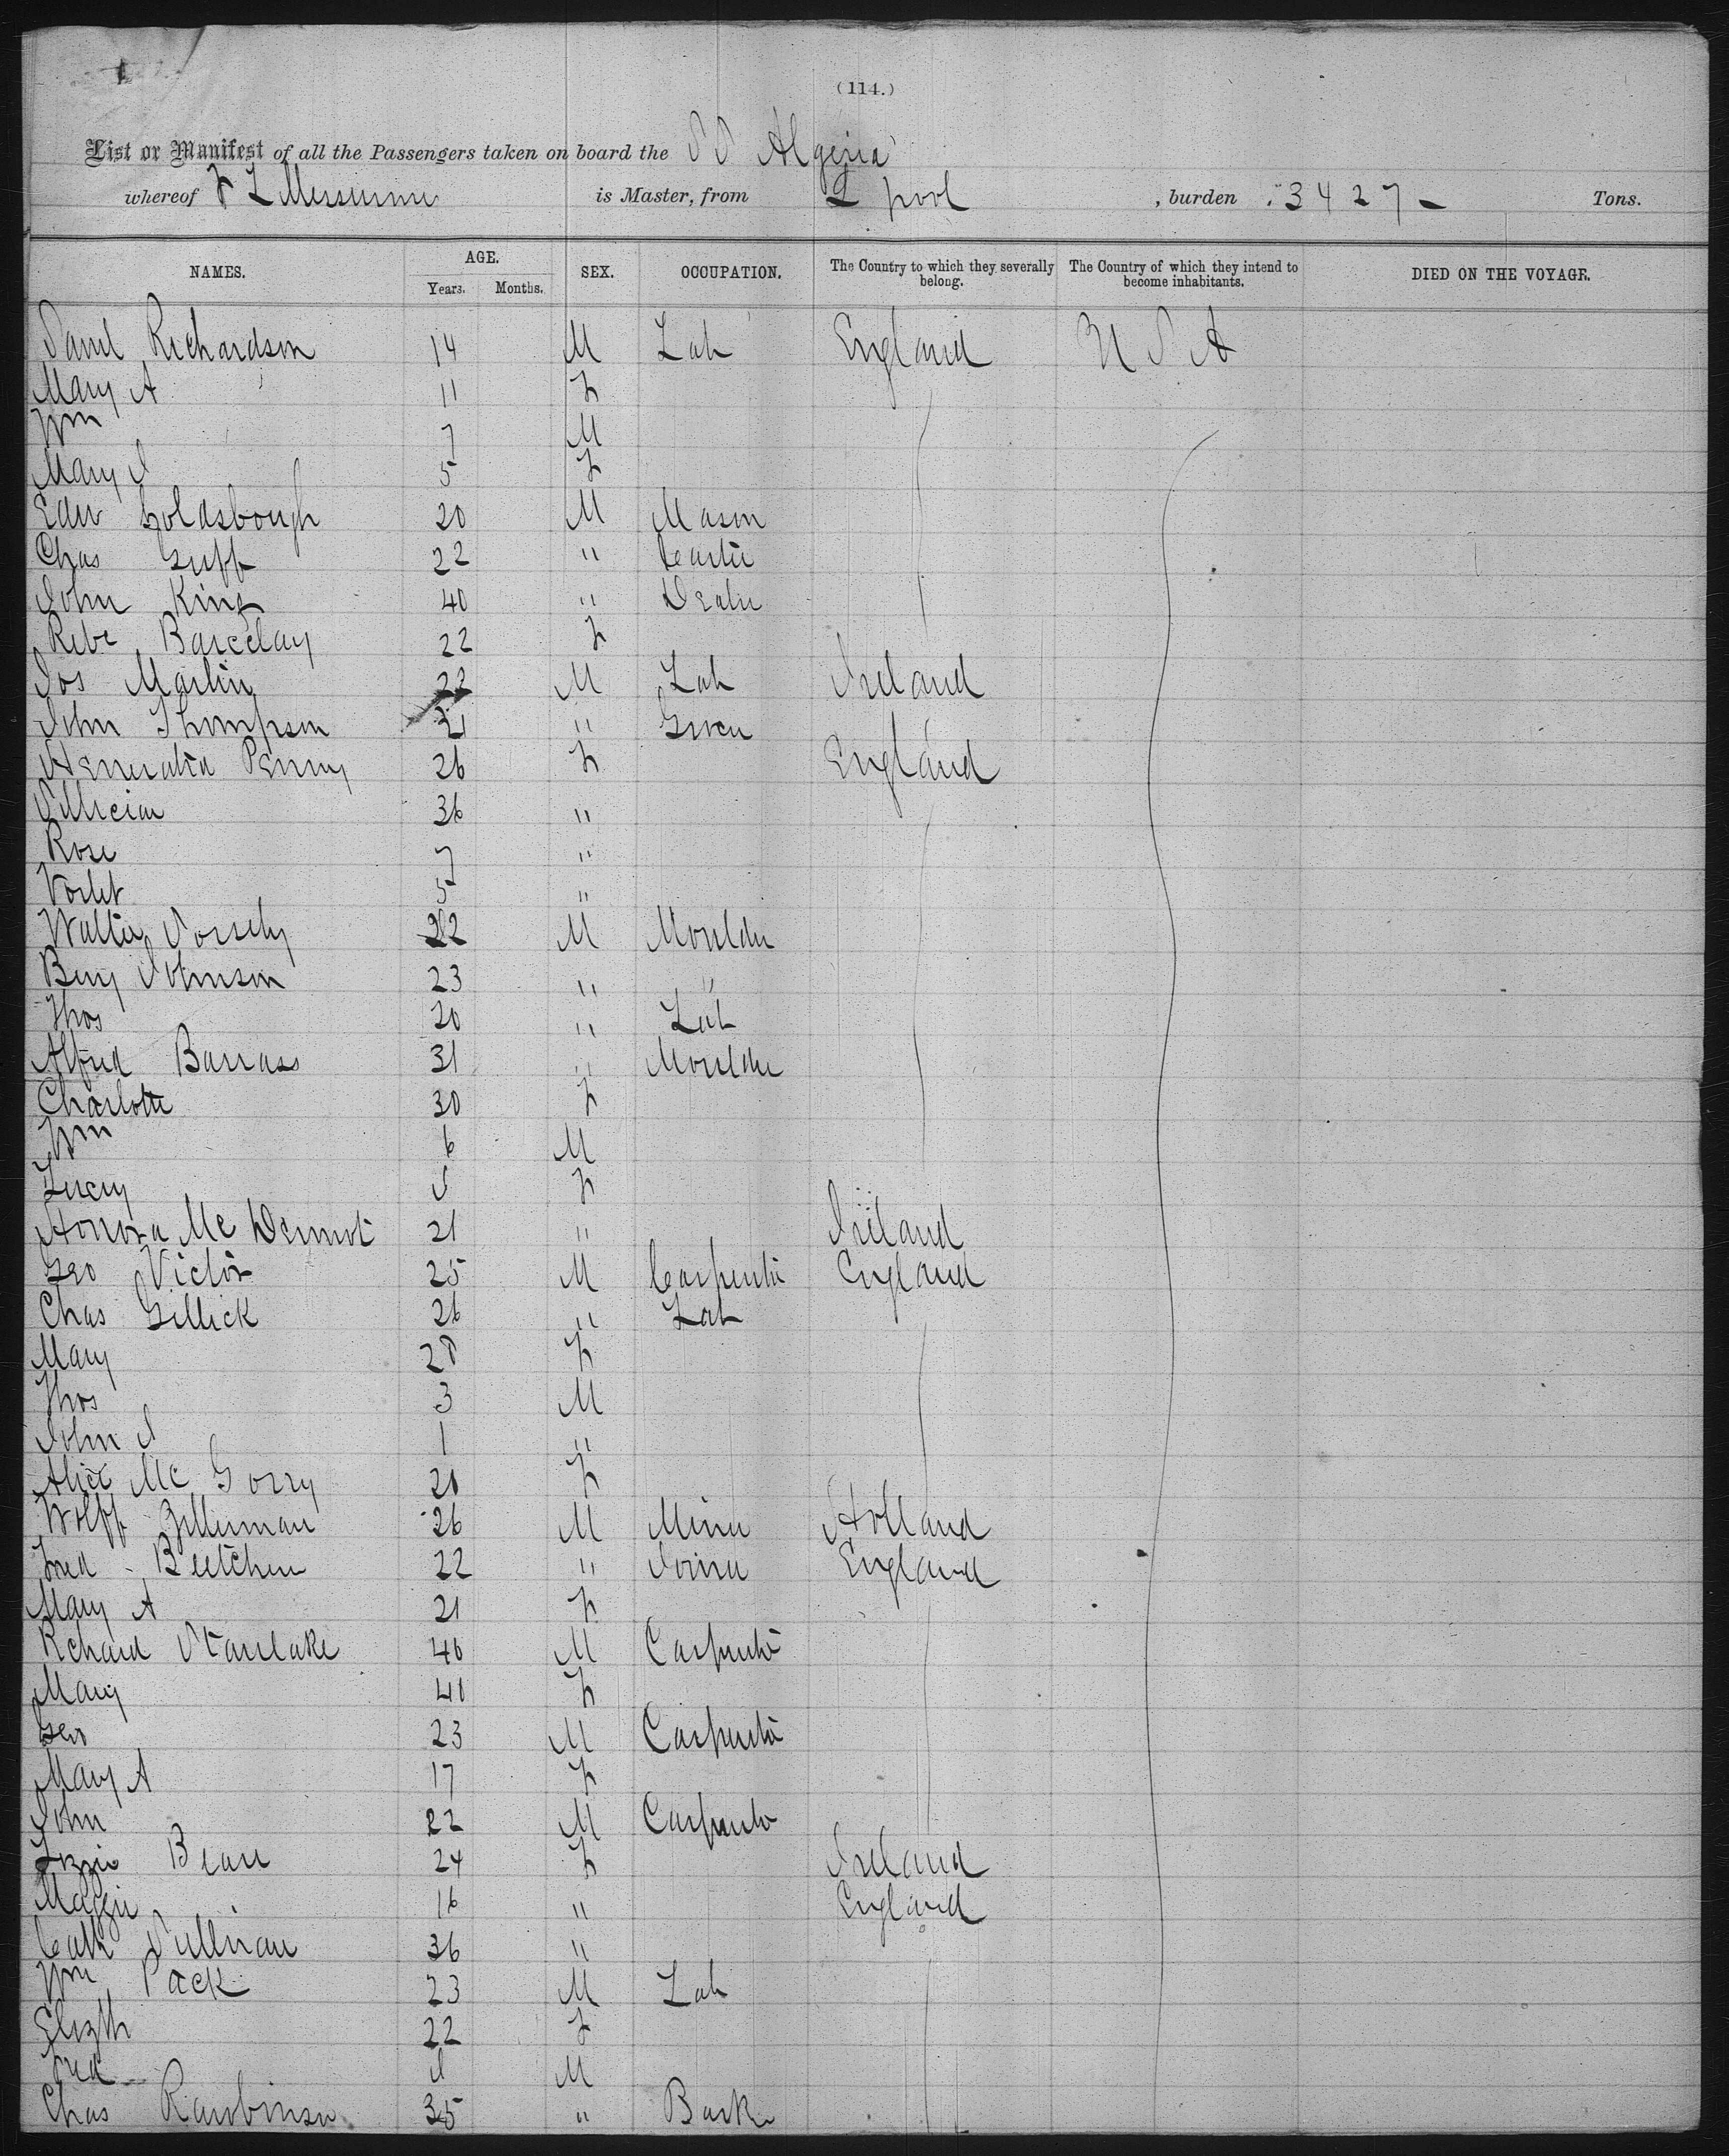 (114.)
List or Manifest of all the Passengers taken on board the S S Algeria
whereof is Master, from L pool, burden 3427 Tons.
NAMES. AGE. Years. Months. SEX. OCCUPATION. The Country to which they severally belong. The Country of which they intend to become inhabitants. DIED ON THE VOYAGE.
Saml Richardson 14 M Lab England U S A
Mary A 11 F
Wm 7 M
Mary J 5 F
Edw Goldsbough 20 M Mason
Chas 22 "
John King 40 " Dealer
Rebe Barcelay 22 F
Jos Martin 22 M Lab Ireland
John Thompson 21 " Grocer
Penny 26 F England
36 "
Rose 7 "
Violet 5 "
Walter 22 M Moulder
Benj Johnson 23 " "
Thos 20 " Lab
Alfred Barrass 31 " Moulder
Charlotte 30 F
Wm 6 M
Lucy F
Honora Mc Dermot 21 " Ireland
Geo Victor 25 M Carpenter England
Chas Gillick 26 " Lab
Mary 28 F
Thos 3 M
John J 1 "
Alice Mc Gorry 20 F
Wolff 26 M Miner Holland
Fred 22 " Joiner England
Mary A 21 F
Richard Stanlake 46 M Carpenter
Mary 41 F
Geo 23 M Carpenter
Mary A 17 F
John 22 M Carpenter
Lizzie 24 F Ireland
Maggie 16 " England
Cath Sullivan 36 "
Wm Pack 23 M Lab
Elizth 22 F
Fred M
Chas 35 "